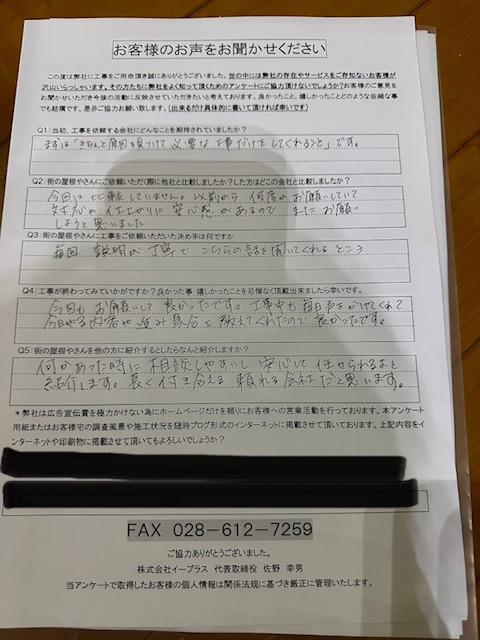 お客様のお声をお聞かせください
この度は弊社に工事をご用命頂き誠にありがとうございました。世の中には弊社の存在やサービスをご存知ないお客様が
沢山いらっしゃいます。その方たちに弊社をよく知って頂くためのアンケートにご協力頂けないでしょうか?お客様のご意見を
お聞かせいただき今後の活動に反映させていただきたいと考えております。良かったこと、嬉しかったことどのような些細な事
でも結構です。是非ご協力お願い致します。(出来るだけ具体的に書いて頂ければ幸いです)
Q1:当初、工事を依頼する会社にどんなことを期待されていましたか?
まずは「きちんと原因を見つけて必要な工事だけをしてくれること」です。
Q2:街の屋根やさんにご依頼いただく際に他社と比較しましたか?した方はどこの会社と比較しましたか?
今回は比較していません。以前から何度かお願いしていて
対応や仕上がりに安心感があるのでまたお願い
しようと思いました
Q3:街の屋根やさんに工事をご依頼いただいた決め手は何ですか
毎回 説明が丁寧でこちらの話を聞いてくれるところ
Q4:工事が終わってみていかがですか?良かった事・嬉しかったことを忌憚なく頂戴出来ましたら幸いです。
今回もお願いして良かったです。工事中も毎日声をかけてくれて
今日やる内容や進み具合を教えてくれたので良かったです。
Q5:街の屋根やさんを他の方に紹介するとしたらなんと紹介しますか?
何かあった時に相談しやすいし安心して任せられるよと
紹介します。長く付き合える頼れる会社だと思います。
*弊社は広告宣伝費を極力かけない為にホームページだけを頼りにお客様への営業活動を行っております。本アンケート
用紙またはお客様宅の調査風景や施工状況を随時ブログ形式のインターネットに掲載させて頂いております。上記内容をイ
ンターネットや印刷物に掲載させて頂いてもよろしいでしょうか?
FAX 028-612-7259
ご協力ありがとうございました。
株式会社イープラス 代表取締役 佐野 幸男
当アンケートで取得したお客様の個人情報は関係法規に基づき厳正に管理いたします。